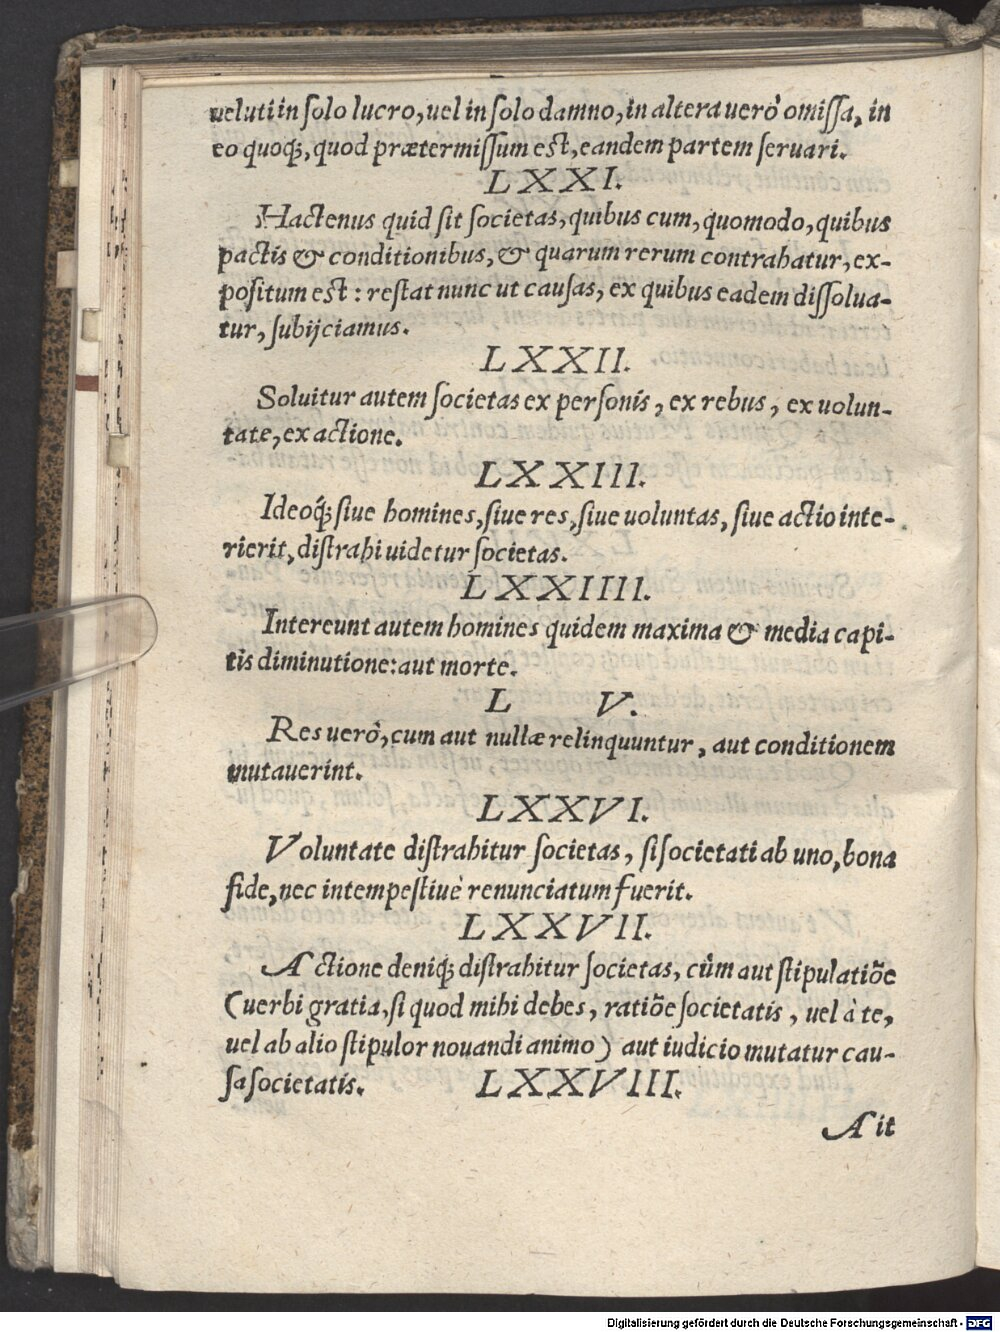 ueluti in solo lucro, uel in solo damno, in altera uerò omissa, in
eo quoq;, quod prætermissum est, eandem partem seruari.
LXXI.
Hactenus quid sit societas, quibus cum, quomodo, quibus
pactis & conditionibus, & quarum rerum contrahatur, ex-
positum est: restat nunc ut causas, ex quibus eadem dissolua-
tur, subijciamus.
LXXII.
Soluitur autem societas ex personis, ex rebus, ex uolun-
tate, ex actione.
LXXIII.
Ideoq́; siue homines, siue res, siue uoluntas, siue actio inte-
rierit, distrahi uidetur societas.
LXXIIII.
Intereunt autem homines quidem maxima & media capi-
tis diminutione: aut morte.
L V.
Res uerò, cum aut nullæ relinquuntur, aut conditionem
mutauerint.
LXXVI.
Voluntate distrahitur societas, si societati ab uno, bona
fide, nec intempestiuè renunciatum fuerit.
LXXVII.
Actione deniq; distrahitur societas, cùm aut stipulatiõe
(uerbi gratia, si quod mihi debes, ratiõe societatis, uel à te,
uel ab alio stipulor nouandi animo) aut iudicio mutatur cau-
sa societatis. LXXVIII.
Ait
Digitalisierung gefördert durch die Deutsche Forschungsgemeinschaft - DFG